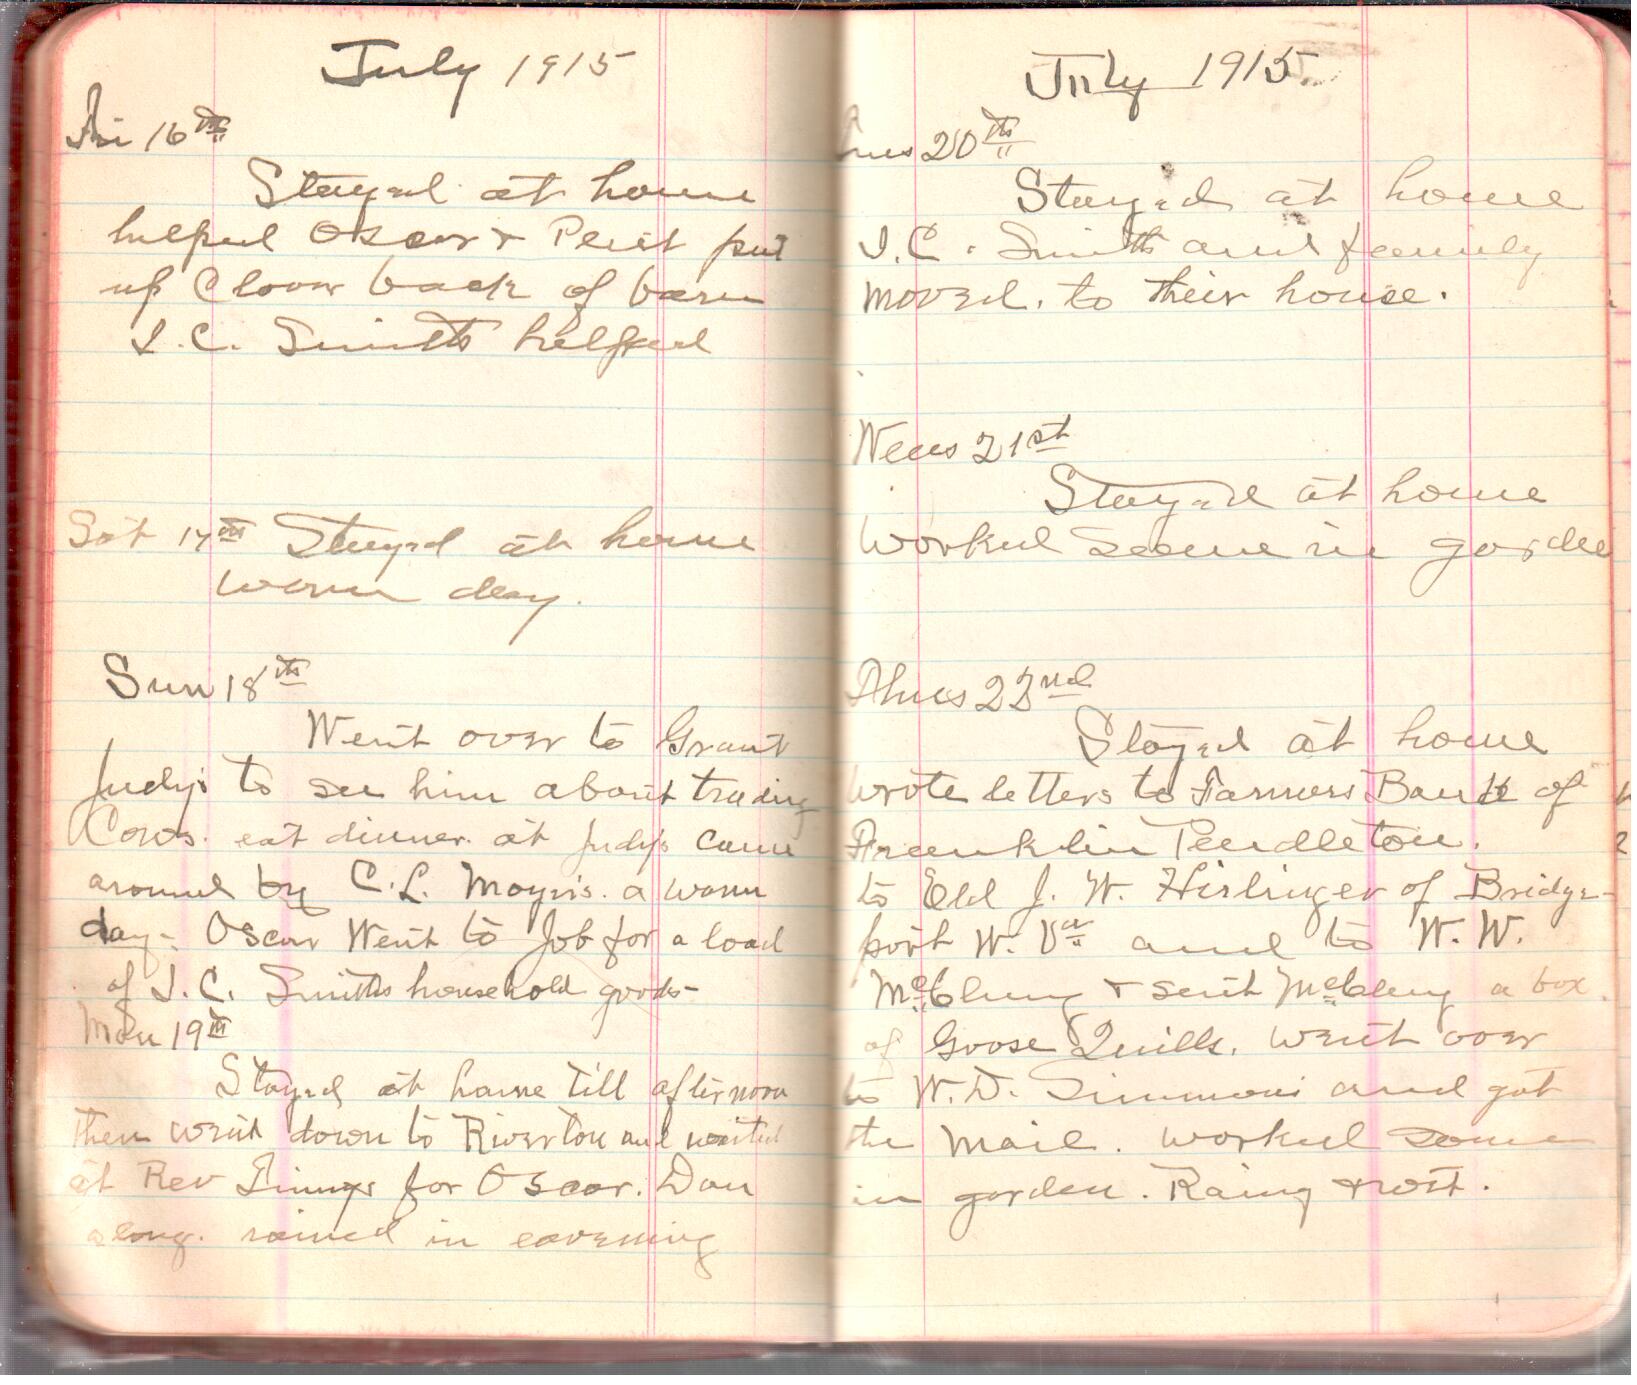 July 1915
Fri 16th
Stayed at home
helped Oscar & Perit put
up Clover back of barn
I.C. Smith helped
Sat 17th Stayed at home
warm day.
Sun 18th
Went over to Grant
Judys to see him about trading
Cows. eat dinner at Judys came
around by C.L. Moyrs. a warm
day - Oscar Went to Job for a load
of I.C. Smiths household goods -
Mon 19th
Stayed at home till afternoon
then went down to Riverton and waited
at Rev for Oscar. Dan
along. rained in eavening
July 1915
Tues 20th
Stayed at home
I.C. Smith and family
moved. to their house.
Weds 21st
Stayed at home
Worked some in garden
Thurs 22nd
Stayed at home
wrote letters to Farmers Bank of
Franklin Pendleton.
to Eld J. W. Hirlinger of Bridge-
port W. Va and to W. W.
McClung & sent McClung a box
of Goose Quills. went over
to W. D. Simmons and got
the mail. worked some
in garden. Rainy & wet.